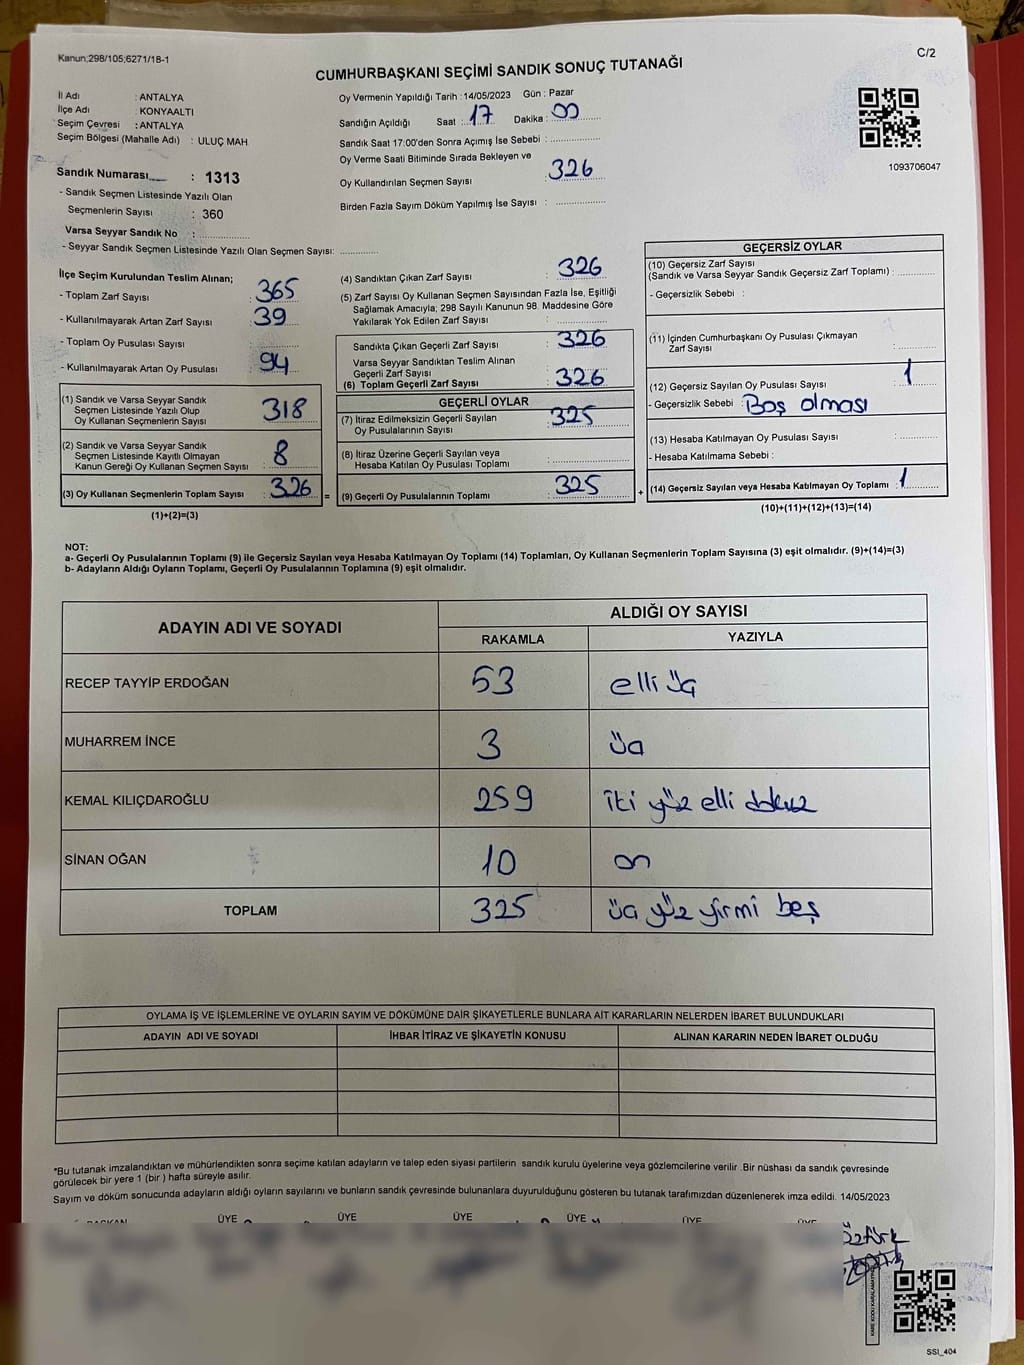 Kanun;298/105,6271/18-1
C/2
CUMHURBAŞKANI SEÇİMİ SANDIK SONUÇ TUTANAĞI
İl Adı : ANTALYA
İlçe Adı : KONYAALTI
Seçim Çevresi : ANTALYA
Seçim Bölgesi (Mahalle Adı) : ULUÇ MAH
Sandık Numarası : 1313
- Sandık Seçmen Listesinde Yazılı Olan
Seçmenlerin Sayısı : 360
Varsa Seyyar Sandık No :
- Seyyar Sandık Seçmen Listesinde Yazılı Olan Seçmen Sayısı:
Oy Vermenin Yapıldığı Tarih :14/05/2023 Gün : Pazar
Sandığın Açıldığı Saat : 17 Dakika : 00
Sandık Saat 17:00'den Sonra Açımış İse Sebebi :
Oy Verme Saati Bitiminde Sırada Bekleyen ve
Oy Kullandırılan Seçmen Sayısı : 326
Birden Fazla Sayım Döküm Yapılmış İse Sayısı :
1093706047
İlçe Seçim Kurulundan Teslim Alınan;
- Toplam Zarf Sayısı : 365
- Kullanılmayarak Artan Zarf Sayısı : 39
- Toplam Oy Pusulası Sayısı :
- Kullanılmayarak Artan Oy Pusulası : 94
(1) Sandık ve Varsa Seyyar Sandık
Seçmen Listesinde Yazılı Olup
Oy Kullanan Seçmenlerin Sayısı : 318
(2) Sandık ve Varsa Seyyar Sandık
Seçmen Listesinde Kayıtlı Olmayan
Kanun Gereği Oy Kullanan Seçmen Sayısı : 8
(3) Oy Kullanan Seçmenlerin Toplam Sayısı : 326 =
(1)+(2)=(3)
(4) Sandıktan Çıkan Zarf Sayısı : 326
(5) Zarf Sayısı Oy Kullanan Seçmen Sayısından Fazla İse, Eşitliği
Sağlamak Amacıyla; 298 Sayılı Kanunun 98. Maddesine Göre
Yakılarak Yok Edilen Zarf Sayısı :
Sandıkta Çıkan Geçerli Zarf Sayısı : 326
Varsa Seyyar Sandıktan Teslim Alınan
Geçerli Zarf Sayısı :
(6) Toplam Geçerli Zarf Sayısı : 326
GEÇERLİ OYLAR
(7) İtiraz Edilmeksizin Geçerli Sayılan
Oy Pusulalarının Sayısı : 325
(8) İtiraz Üzerine Geçerli Sayılan veya
Hesaba Katılan Oy Pusulası Toplamı :
(9) Geçerli Oy Pusulalarının Toplamı : 325 +
GEÇERSİZ OYLAR
(10) Geçersiz Zarf Sayısı
(Sandık ve Varsa Seyyar Sandık Geçersiz Zarf Toplamı) :
- Geçersizlik Sebebi :
(11) İçinden Cumhurbaşkanı Oy Pusulası Çıkmayan
Zarf Sayısı :
(12) Geçersiz Sayılan Oy Pusulası Sayısı : 1
- Geçersizlik Sebebi : Boş olması
(13) Hesaba Katılmayan Oy Pusulası Sayısı :
- Hesaba Katılmama Sebebi :
(14) Geçersiz Sayılan veya Hesaba Katılmayan Oy Toplamı : 1
(10)+(11)+(12)+(13)=(14)
NOT:
a- Geçerli Oy Pusulalarının Toplamı (9) ile Geçersiz Sayılan veya Hesaba Katılmayan Oy Toplamı (14) Toplamları, Oy Kullanan Seçmenlerin Toplam Sayısına (3) eşit olmalıdır. (9)+(14)=(3)
b- Adayların Aldığı Oyların Toplamı, Geçerli Oy Pusulalarının Toplamına (9) eşit olmalıdır.
ADAYIN ADI VE SOYADI ALDIĞI OY SAYISI
RAKAMLA YAZIYLA
RECEP TAYYİP ERDOĞAN 53 elli üç
MUHARREM İNCE 3 üç
KEMAL KILIÇDAROĞLU 259 iki yüz elli dokuz
SİNAN OĞAN 10 on
TOPLAM 325 üç yüz yirmi beş
OYLAMA İŞ VE İŞLEMLERİNE VE OYLARIN SAYIM VE DÖKÜMÜNE DAİR ŞİKAYETLERLE BUNLARA AİT KARARLARIN NELERDEN İBARET BULUNDUKLARI
ADAYIN ADI VE SOYADI İHBAR İTİRAZ VE ŞİKAYETİN KONUSU ALINAN KARARIN NEDEN İBARET OLDUĞU
*Bu tutanak imzalandıktan ve mühürlendikten sonra seçime katılan adayların ve talep eden siyasi partilerin sandık kurulu üyelerine veya gözlemcilerine verilir .Bir nüshası da sandık çevresinde
görülecek bir yere 1 (bir ) hafta süreyle asılır.
Sayım ve döküm sonucunda adayların aldığı oyların sayılarını ve bunların sandık çevresinde bulunanlara duyurulduğunu gösteren bu tutanak tarafımızdan düzenlenerek imza edildi. 14/05/2023
BAŞKAN ÜYE ÜYE ÜYE ÜYE ÜYE ÜYE
Öztürk
SSI_404